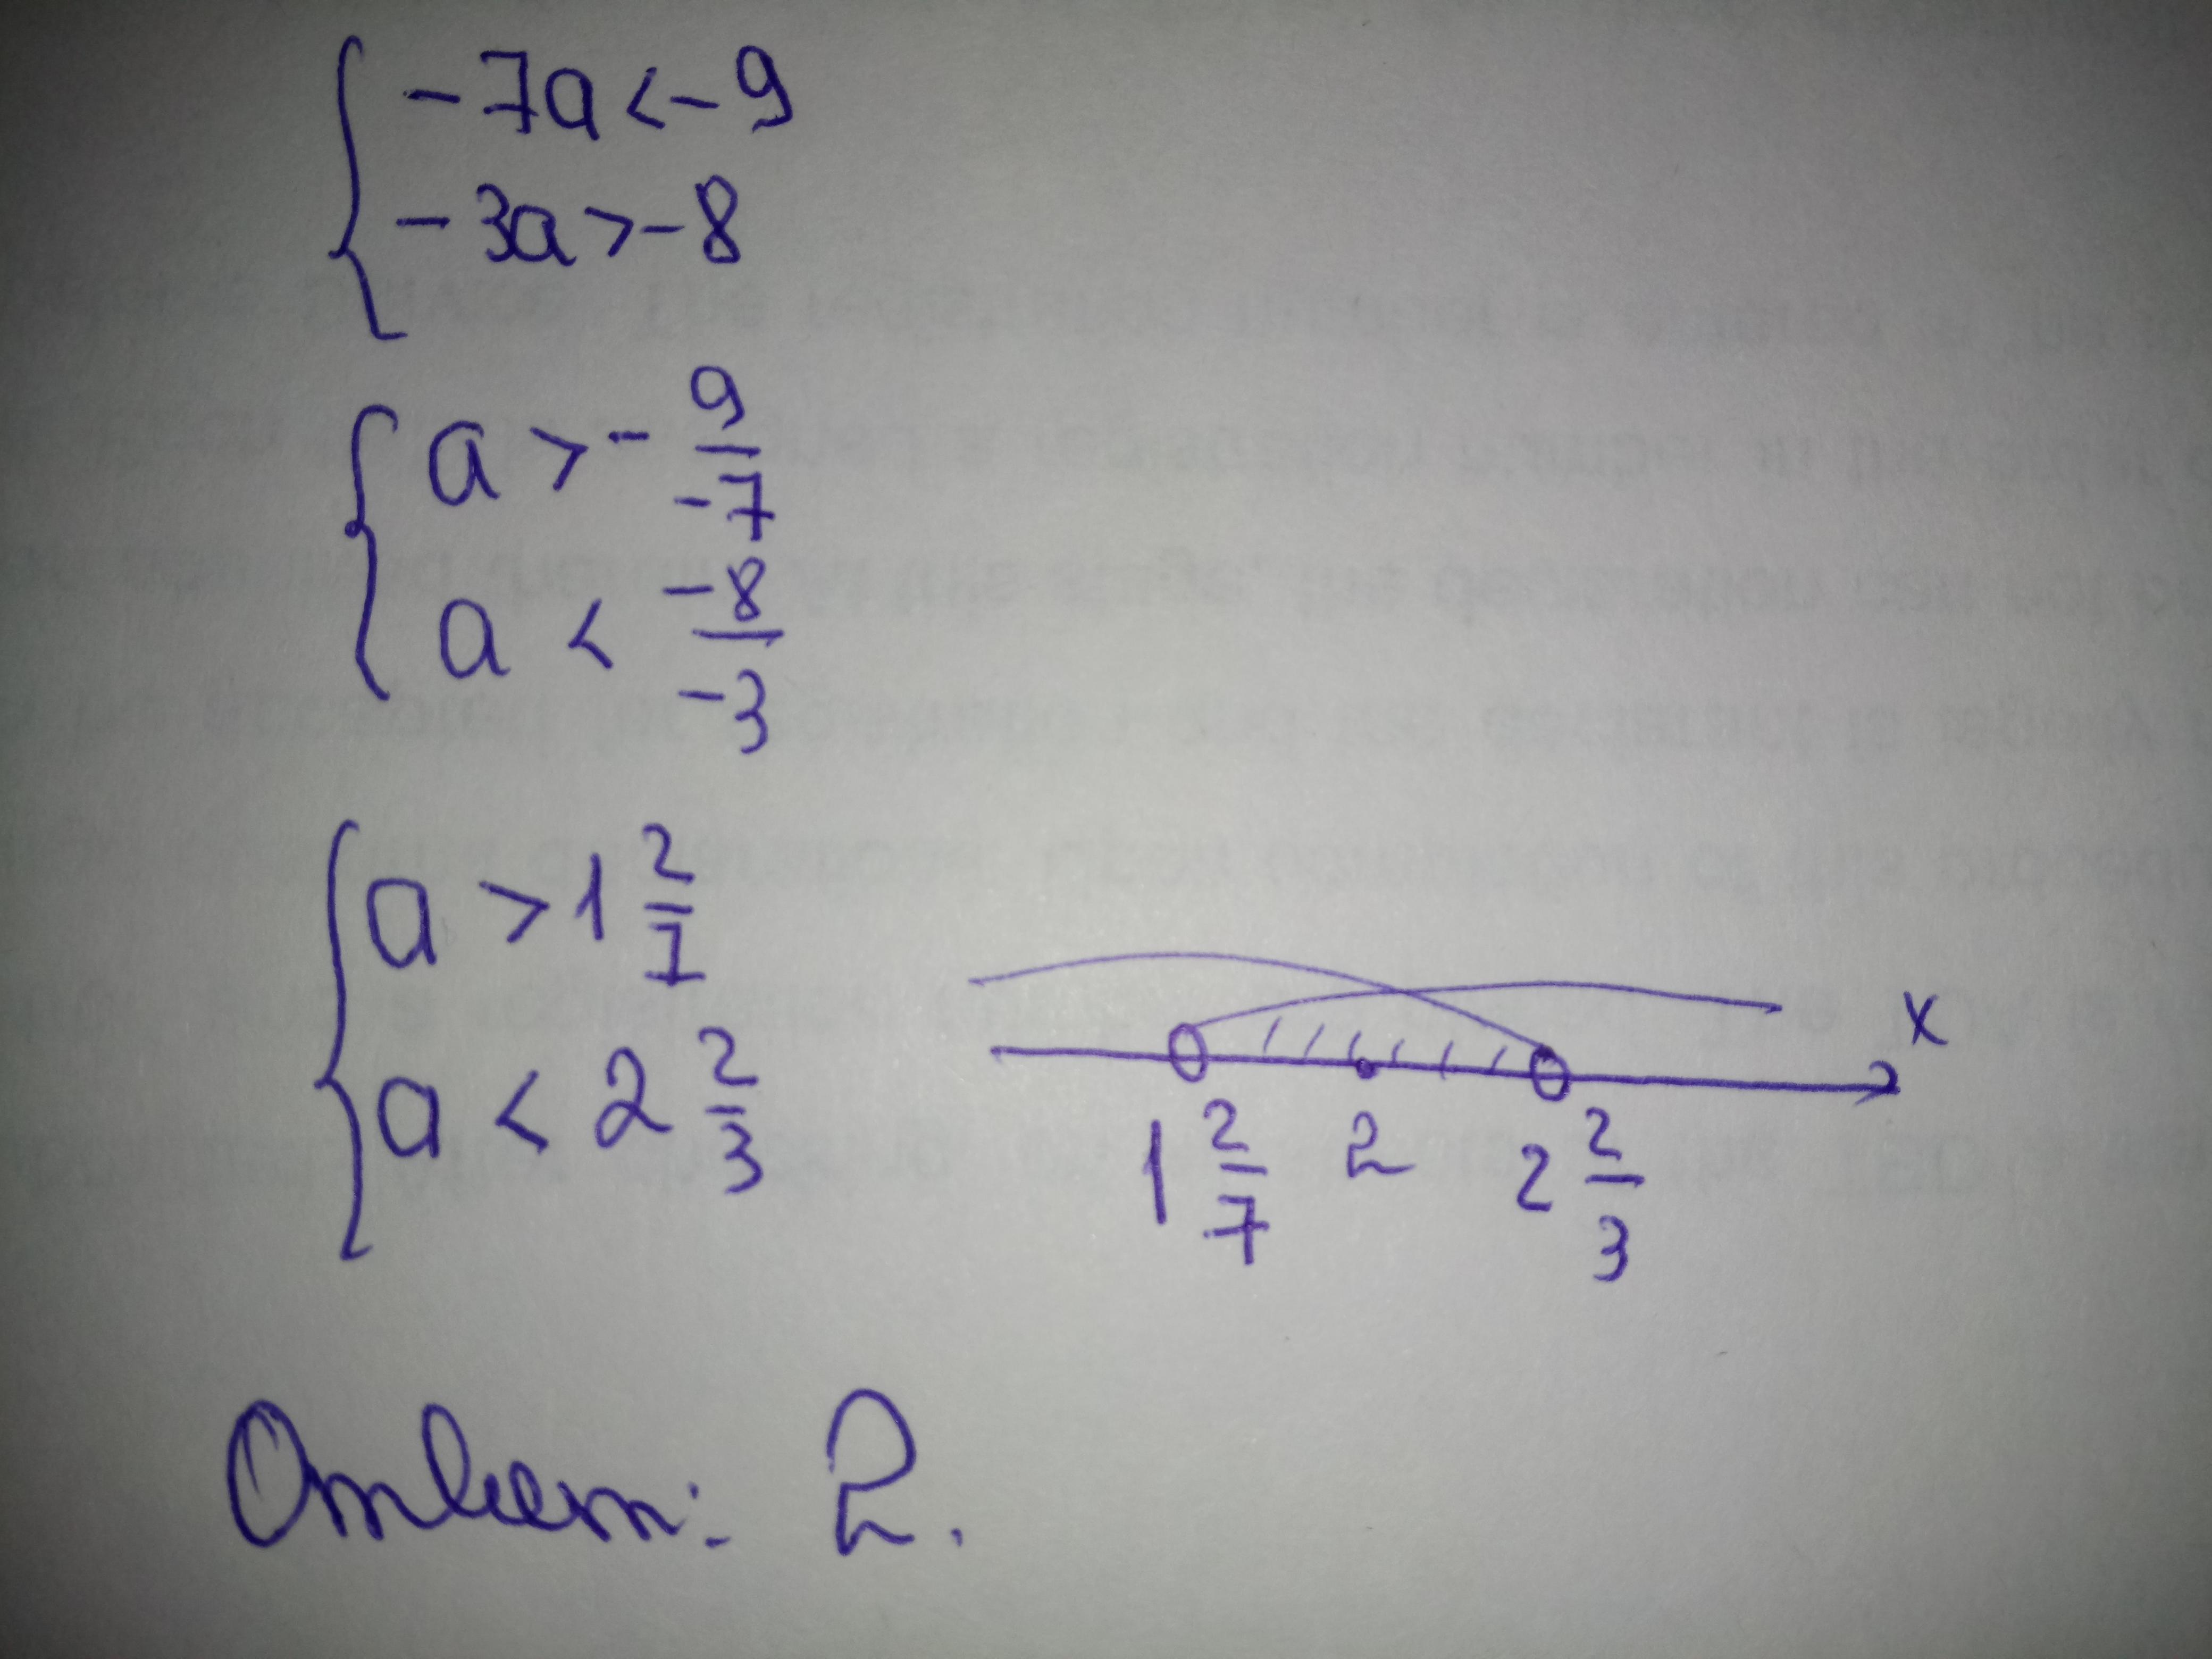 { -7a < -9
-3a > -8
{ a > - 9/-7
a < -8/-3
{ a > 1 2/7
a < 2 2/3
x
1 2/7 2 2 2/3
Ответ: 2.